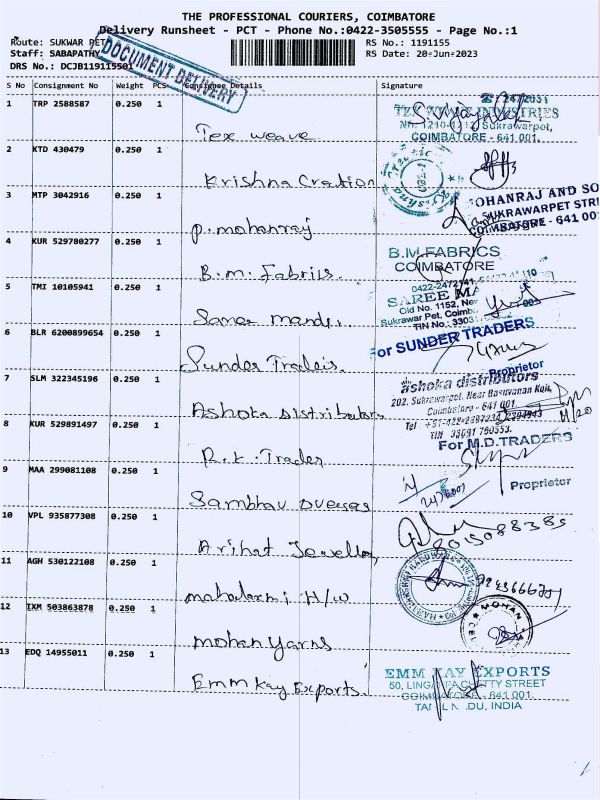 THE PROFESSIONAL COURIERS, COIMBATORE
Delivery Runsheet - PCT - Phone No.:0422-3505555 - Page No.:1
Route: SUKWAR PET
RS No.: 1191155
Staff: SABAPATHY
RS Date: 20-Jun-2023
DRS No.: DCJB119115501
DOCUMENT DELIVERY
S No Consignment No Weight PCS Consignee Details Signature
1 TRP 2588587 0.250 1
Tex weave
TEX WEAVE INDUSTRIES
Sukrawarpet,
COIMBATORE - 641 001.
2 KTD 430479 0.250 1
Krishna Cration
3 MTP 3042916 0.250 1
p.mohanraj
MOHANRAJ AND SO
SUKRAWARPET STRE
COIMBATORE - 641 00
4 KUR 529780277 0.250 1
B.m. Fabrics.
B.M.FABRICS
COIMBATORE
5 TMI 10105941 0.250 1
Saree mandir
0422-2472141
SAREE MA
Old No. 1152, New
Sukrawar Pet, Coimb
TIN No.: 3303
6 BLR 6200899654 0.250 1
Sunder Traders.
For SUNDER TRADERS
Proprietor
7 SLM 322345196 0.250 1
Ashoka Distributors
ashoka distributors
202, Sukrawarpet, Near Basuvanan Koil,
Coimbatore - 641 001.
Tel +91-422-2397234, 2394943
TIN 33091 760553.
8 KUR 529891497 0.250 1
R.K. Trader
For M.D.TRADERS
Proprietor
9 MAA 299081108 0.250 1
Sambhav overses
10 VPL 935877308 0.250 1
Arihat Jewellor,
8015088385
11 AGH 530122108 0.250 1
mahalaxmi H/w
12 IXM 503863878 0.250 1
mohan yarns
MOHAN
13 EDQ 14955011 0.250 1
Emm Kay Exports.
EMM KAY EXPORTS
50, LINGAPPA CHETTY STREET
COIMBATORE - 641 001.
TAMIL NADU, INDIA